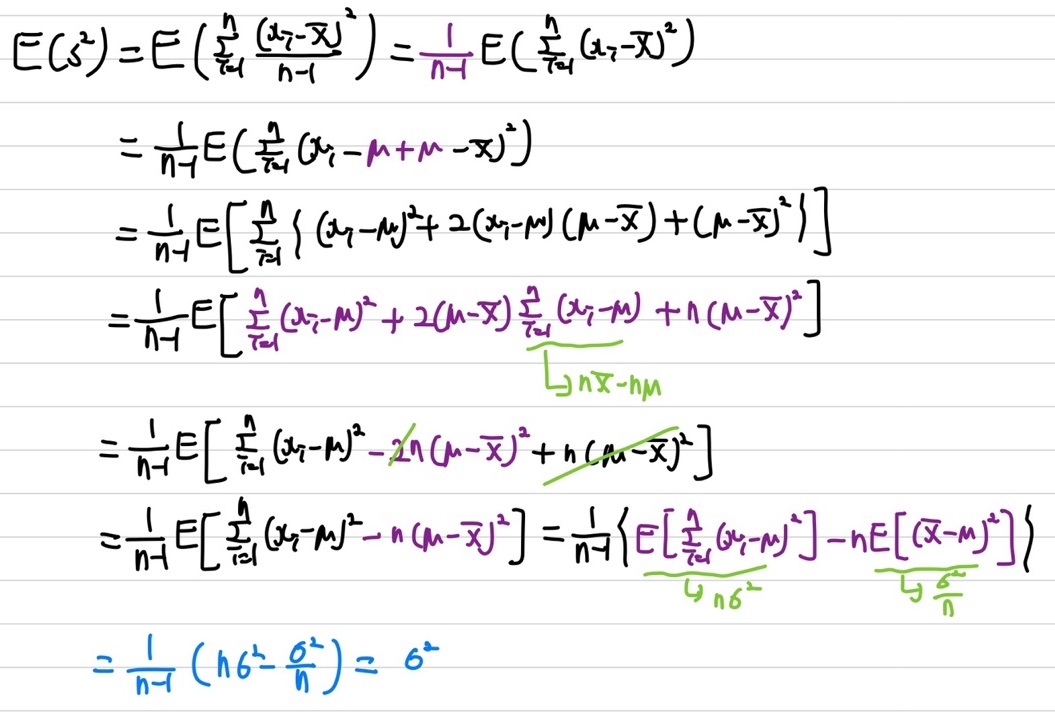 E(s²) = E(Σᵢ₌₁ⁿ (xᵢ-x̄)²/(n-1)) = 1/(n-1) E(Σᵢ₌₁ⁿ (xᵢ-x̄)²)
= 1/(n-1) E(Σᵢ₌₁ⁿ (xᵢ-μ+μ-x̄)²)
= 1/(n-1) E[Σᵢ₌₁ⁿ {(xᵢ-μ)²+2(xᵢ-μ)(μ-x̄)+(μ-x̄)²}]
= 1/(n-1) E[Σᵢ₌₁ⁿ (xᵢ-μ)² + 2(μ-x̄) Σᵢ₌₁ⁿ (xᵢ-μ) + n(μ-x̄)²]
↳ nx̄-nμ
= 1/(n-1) E[Σᵢ₌₁ⁿ (xᵢ-μ)² - 2n(μ-x̄)² + n(μ-x̄)²]
= 1/(n-1) E[Σᵢ₌₁ⁿ (xᵢ-μ)² - n(μ-x̄)²] = 1/(n-1) {E[Σᵢ₌₁ⁿ (xᵢ-μ)²] - nE[(x̄-μ)²]}
↳ nσ² ↳ σ²/n
= 1/(n-1) (nσ² - σ²/n) = σ²